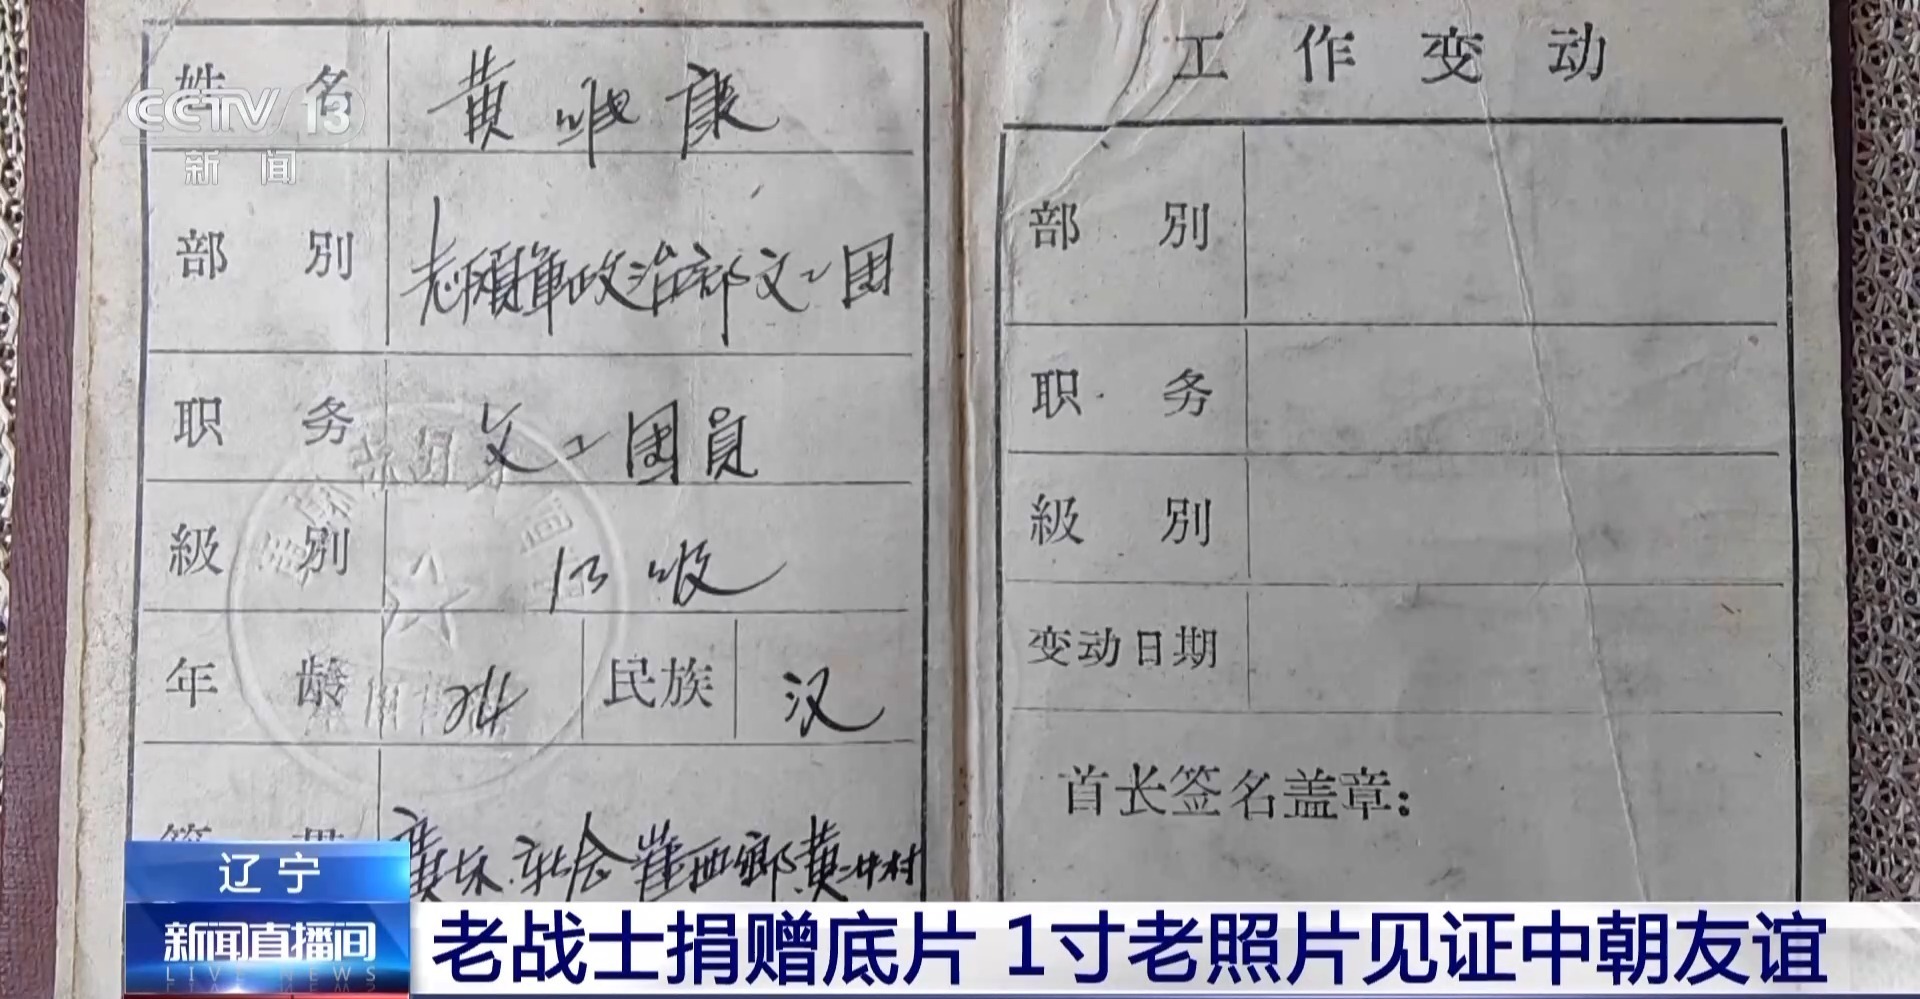 CCTV 13
新闻
姓名 黄 康
部別 志願軍政治部文工團
职务 文工團員
級別
年龄 24 民族 汉
廣东 新会 崖西鄉 黄冲村
工作变动
部別
职务
級別
变动日期
首长签名盖章：
辽宁
新闻直播间
LIVE NEWS
老战士捐赠底片 1寸老照片见证中朝友谊